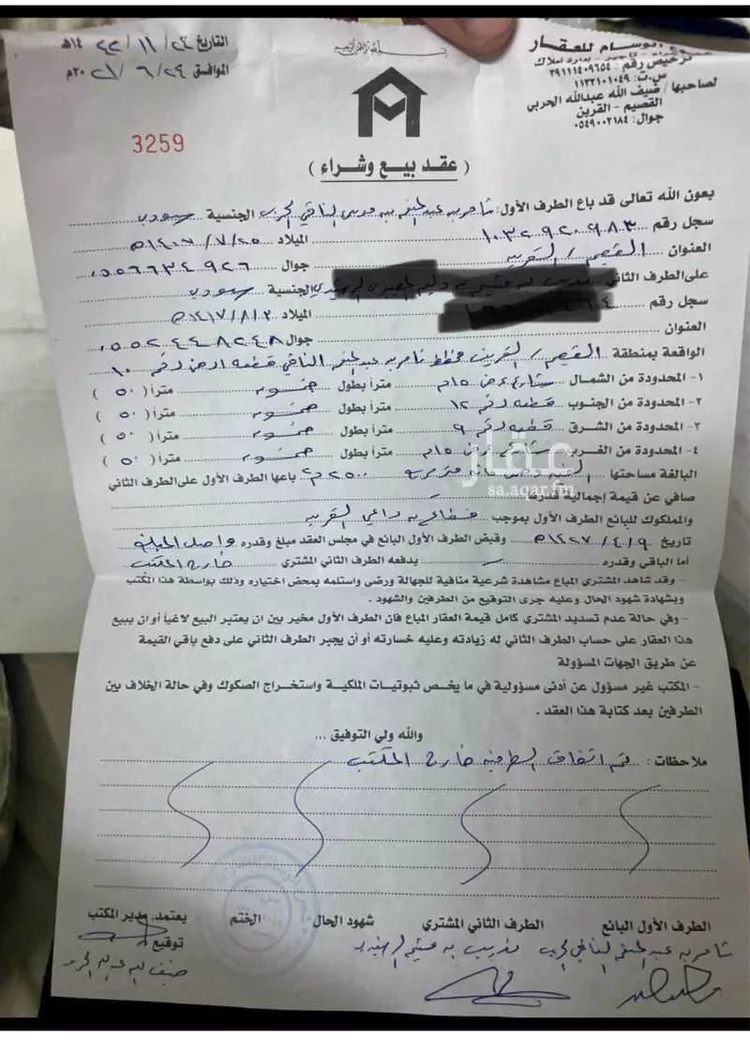 وسام للعقار
ترخيص رقم : ٣٩١١١٤٠٩٦٥٤
س.ت: ١١٣٢١٠١٠٤٩
لصاحبها / ضيف الله عبدالله الحربي
القصيم - القرين
جوال: ٠٥٤٩٠٠٢١٨٤
التاريخ ٢٤ / ١١ / ١٤٤٢هـ
الموافق
3259
( عقد بيع وشراء )
بعون الله تعالى قد باع الطرف الأول: ثامر بن عبدالمحسن بن الحربي الجنسية سعودي
سجل رقم ١٠٣٢٩٢٠٩٨٣ الميلاد ١٤٠٧/٧/٢٥هـ
العنوان القصيم / القرين جوال ٠٥٥٦٦٣٤٩٢٦
على الطرف الثاني الجنسية سعودي
سجل رقم الميلاد ١٤١٧/٨/٢هـ
العنوان جوال ٠٥٥٢٤٤٨٢٤٨
الواقعة بمنطقة القصيم / القرين مخطط ثامر بن عبدالمحسن قطعة ارض رقم ١٠
١- المحدودة من الشمال شارع عرض ١٥م متراً بطول خمسون متراً ( ٥٠ )
٢- المحدودة من الجنوب قطعة رقم ١٢ متراً بطول خمسون متراً ( ٥٠ )
٣- المحدودة من الشرق قطعة رقم ٩ متراً بطول خمسون متراً ( ٥٠ )
٤- المحدودة من الغرب شارع عرض ١٥م متراً بطول خمسون متراً ( ٥٠ )
البالغة مساحتها متر مربع ٢٥٠٠م٢ باعها الطرف الأول على الطرف الثاني
صافي عن قيمة إجمالية قدرها
والمملوك للبائع الطرف الأول بموجب القرين
تاريخ ١٤٣٧/٤/٩هـ وقبض الطرف الأول البائع في مجلس العقد مبلغ وقدره واصل المبلغ
أما الباقي وقدره يدفعه الطرف الثاني المشتري خارج المكتب
- وقد شاهد المشتري المباع مشاهدة شرعية منافية للجهالة ورضى واستلمه بمحض اختياره وذلك بواسطة هذا المكتب
وبشهادة شهود الحال وعليه جرى التوقيع من الطرفين والشهود .
- وفي حالة عدم تسديد المشتري كامل قيمة العقار المباع فان الطرف الأول مخير بين ان يعتبر البيع لاغياً أو ان يبيع
هذا العقار على حساب الطرف الثاني له زيادته وعليه خسارته أو أن يجبر الطرف الثاني على دفع باقي القيمة
عن طريق الجهات المسؤولة
- المكتب غير مسؤول عن أدنى مسؤولية في ما يخص ثبوتيات الملكية واستخراج الصكوك وفي حالة الخلاف بين
الطرفين بعد كتابة هذا العقد .
والله ولي التوفيق ...
ملاحظات : تم اتفاق الطرفين خارج المكتب
الطرف الأول البائع الطرف الثاني المشتري شهود الحال الختم يعتمد. مدير المكتب
توقيع
ثامر بن عبدالمحسن
عقار
sa.aqar.fm